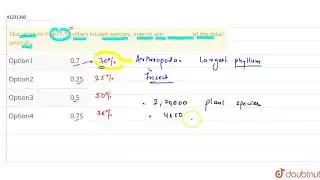 41231260
Out of more than 1.5 million known species, insects are ______ of the total
animals
Option1 0.7 70% Arthropoda Largest phyllum
Option2 0.25 25% Insect
Option3 0.5 50%
Option4 0.75 75%
2,70,000 plant species
doubtnut